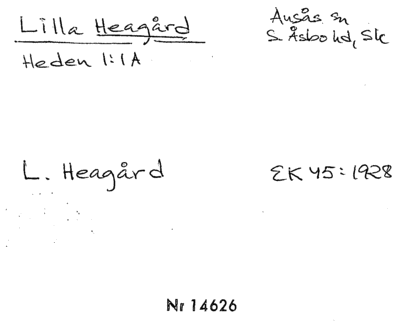 Lilla Heagård
Ausås sn
S. Åsbo hd, Sk
Heden 1:1A
L. Heagård
EK 45:1928
Nr 14626